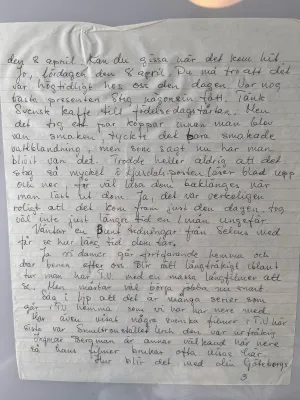 den 8 april. Kan du gissa när det kom hit.
Jo, lördagen den 8 april. Du må tro att det
var högtidligt hos oss den dagen. Var nog
bästa presenten Stig någonsin fått. Tänk
Svensk kaffe till födelsedagstårtan. Men
det tog ett par koppar innan man blev
van smaken, tyckte det bara smakade
vattblandning, men som sagt nu har man
blivit van det. Trodde heller aldrig att det
stog så mycket i tjursdalsposten läser blad upp
och ner, får väl läsa dom baklänges när
man läst ut dom. Ja, det var verkligen
roligt att det kom fram just den dagen, tog
väl inte just längre tid en 1 mån ungefär.
Väntar en Bunt tidningar från Selens med
får se hur lång tid dom tar.
Ja vi damer går fortfarande hemma och
bara benen efter oss. Blir rätt långtråkigt ibland
tur man har T.V. med en massa långfilmer att
se. Men måste väl börja jobba nu snart
dag i hop att det är många serier som
går i T.V. hemma som vi har här nere med.
Har även visats några svenska filmer i T.V här
sista var Smultronstället och den var urtråkig
Ingmar Bergman är annars välkänd här nere
så hans filmer brukar ofta visas här.
Hur blir det med din Göteborgs
3